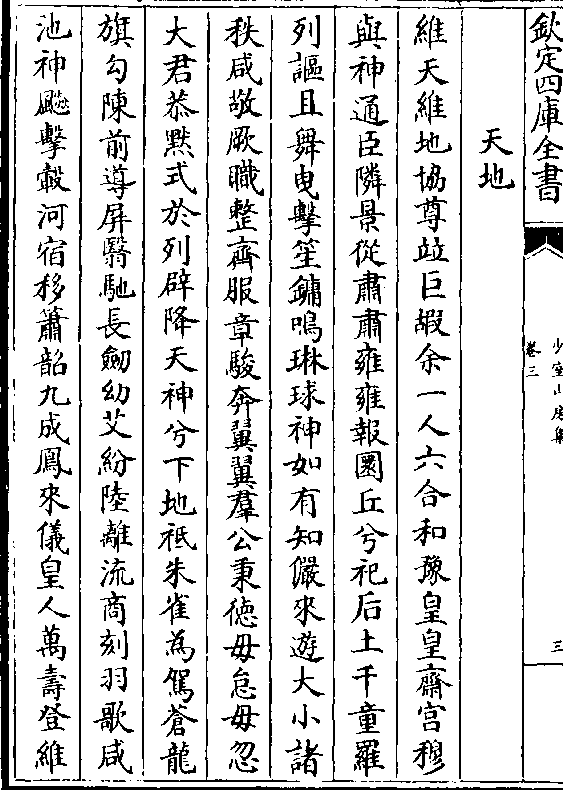 欽定四庫全書
少室山房集
卷三
三
天地
維天維地協尊竝巨嘏余一人六合和豫皇皇齋宫穆
與神通臣隣景從肅肅雍雍報圜丘兮祀后土千童羅
列謳且舞曳擊笙鏞鳴琳球神如有知儼來遊大小諸
秩咸敬厥職整齊服章駿奔翼翼羣公秉徳毋怠毋忽
大君恭黙式於列辟降天神兮下地祇朱雀為駕蒼龍
旗勾陳前導屏翳馳長劒幼艾紛陸離流商刻羽歌咸
池神飈擊轂河宿移簫韶九成鳳來儀皇人萬壽登維